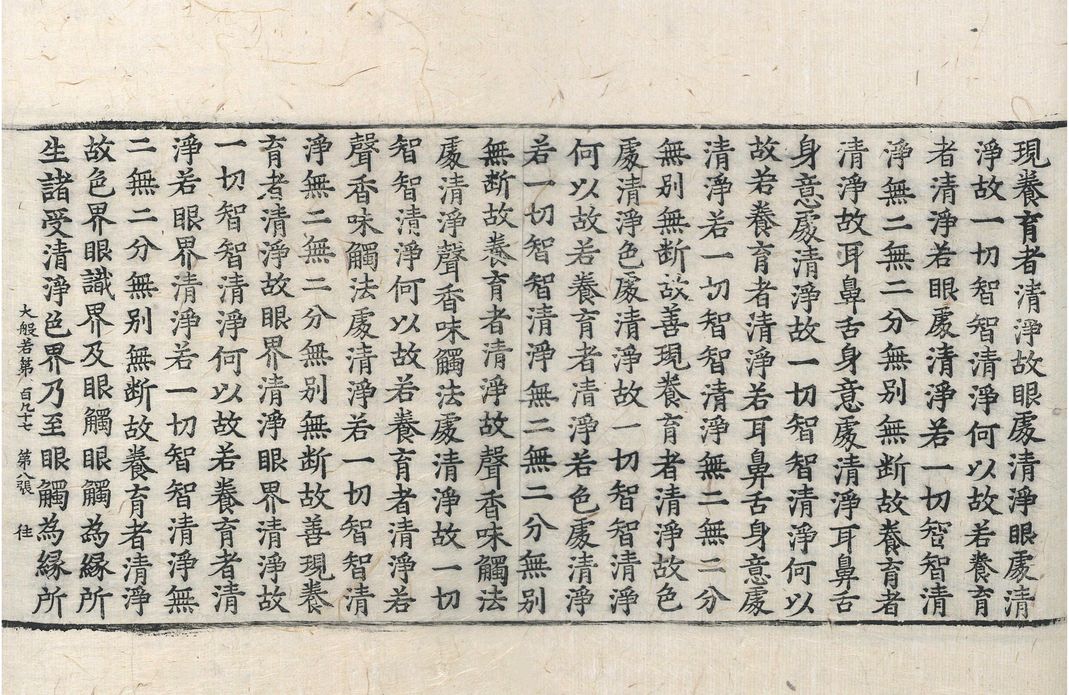 現養育者清淨故眼處清淨眼處清
淨故一切智智清淨何以故若養育
者清淨若眼處清淨若一切智智清
淨無二無二分無别無断故養育者
清淨故耳鼻舌身意處清淨耳鼻舌
身意處清淨故一切智智清淨何以
故若養育者清淨若耳鼻舌身意處
清淨若一切智智清淨無二無二分
無别無断故善現養育者清淨故色
處清淨色處清淨故一切智智清淨
何以故若養育者清淨若色處清淨
若一切智智清淨無二無二分無别
無断故養育者清淨故聲香味觸法
處清淨聲香味觸法處清淨故一切
智智清淨何以故若養育者清淨若
聲香味觸法處清淨若一切智智清
淨無二無二分無别無断故善現養
育者清淨故眼界清淨眼界清淨故
一切智智清淨何以故若養育者清
淨若眼界清淨若一切智智清淨無
二無二分無别無断故養育者清淨
故色界眼識界及眼觸眼觸為緣所
生諸受清淨色界乃至眼觸為緣所
大般若第一百九十七 第八張 往